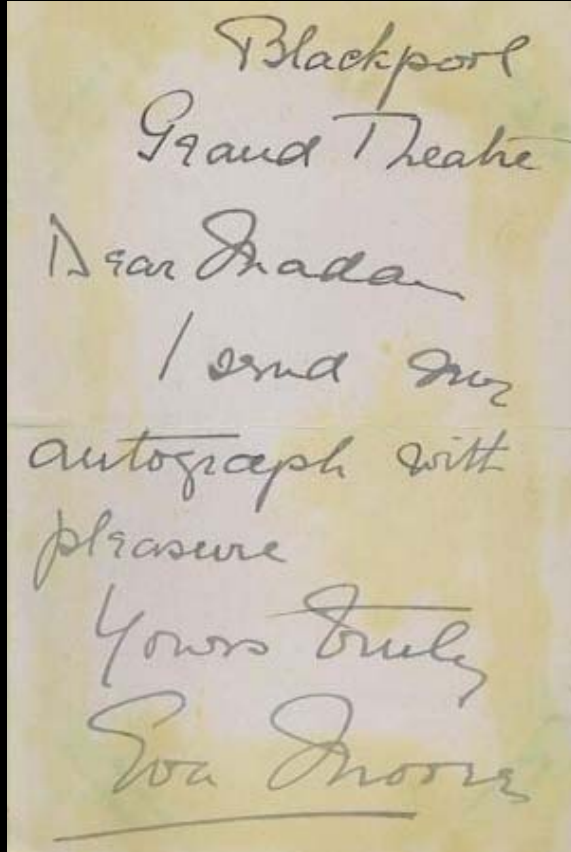 Blackpool
Grand Theatre
Dear Madam
I send my
autograph with
pleasure
Yours truly
Eva Moore